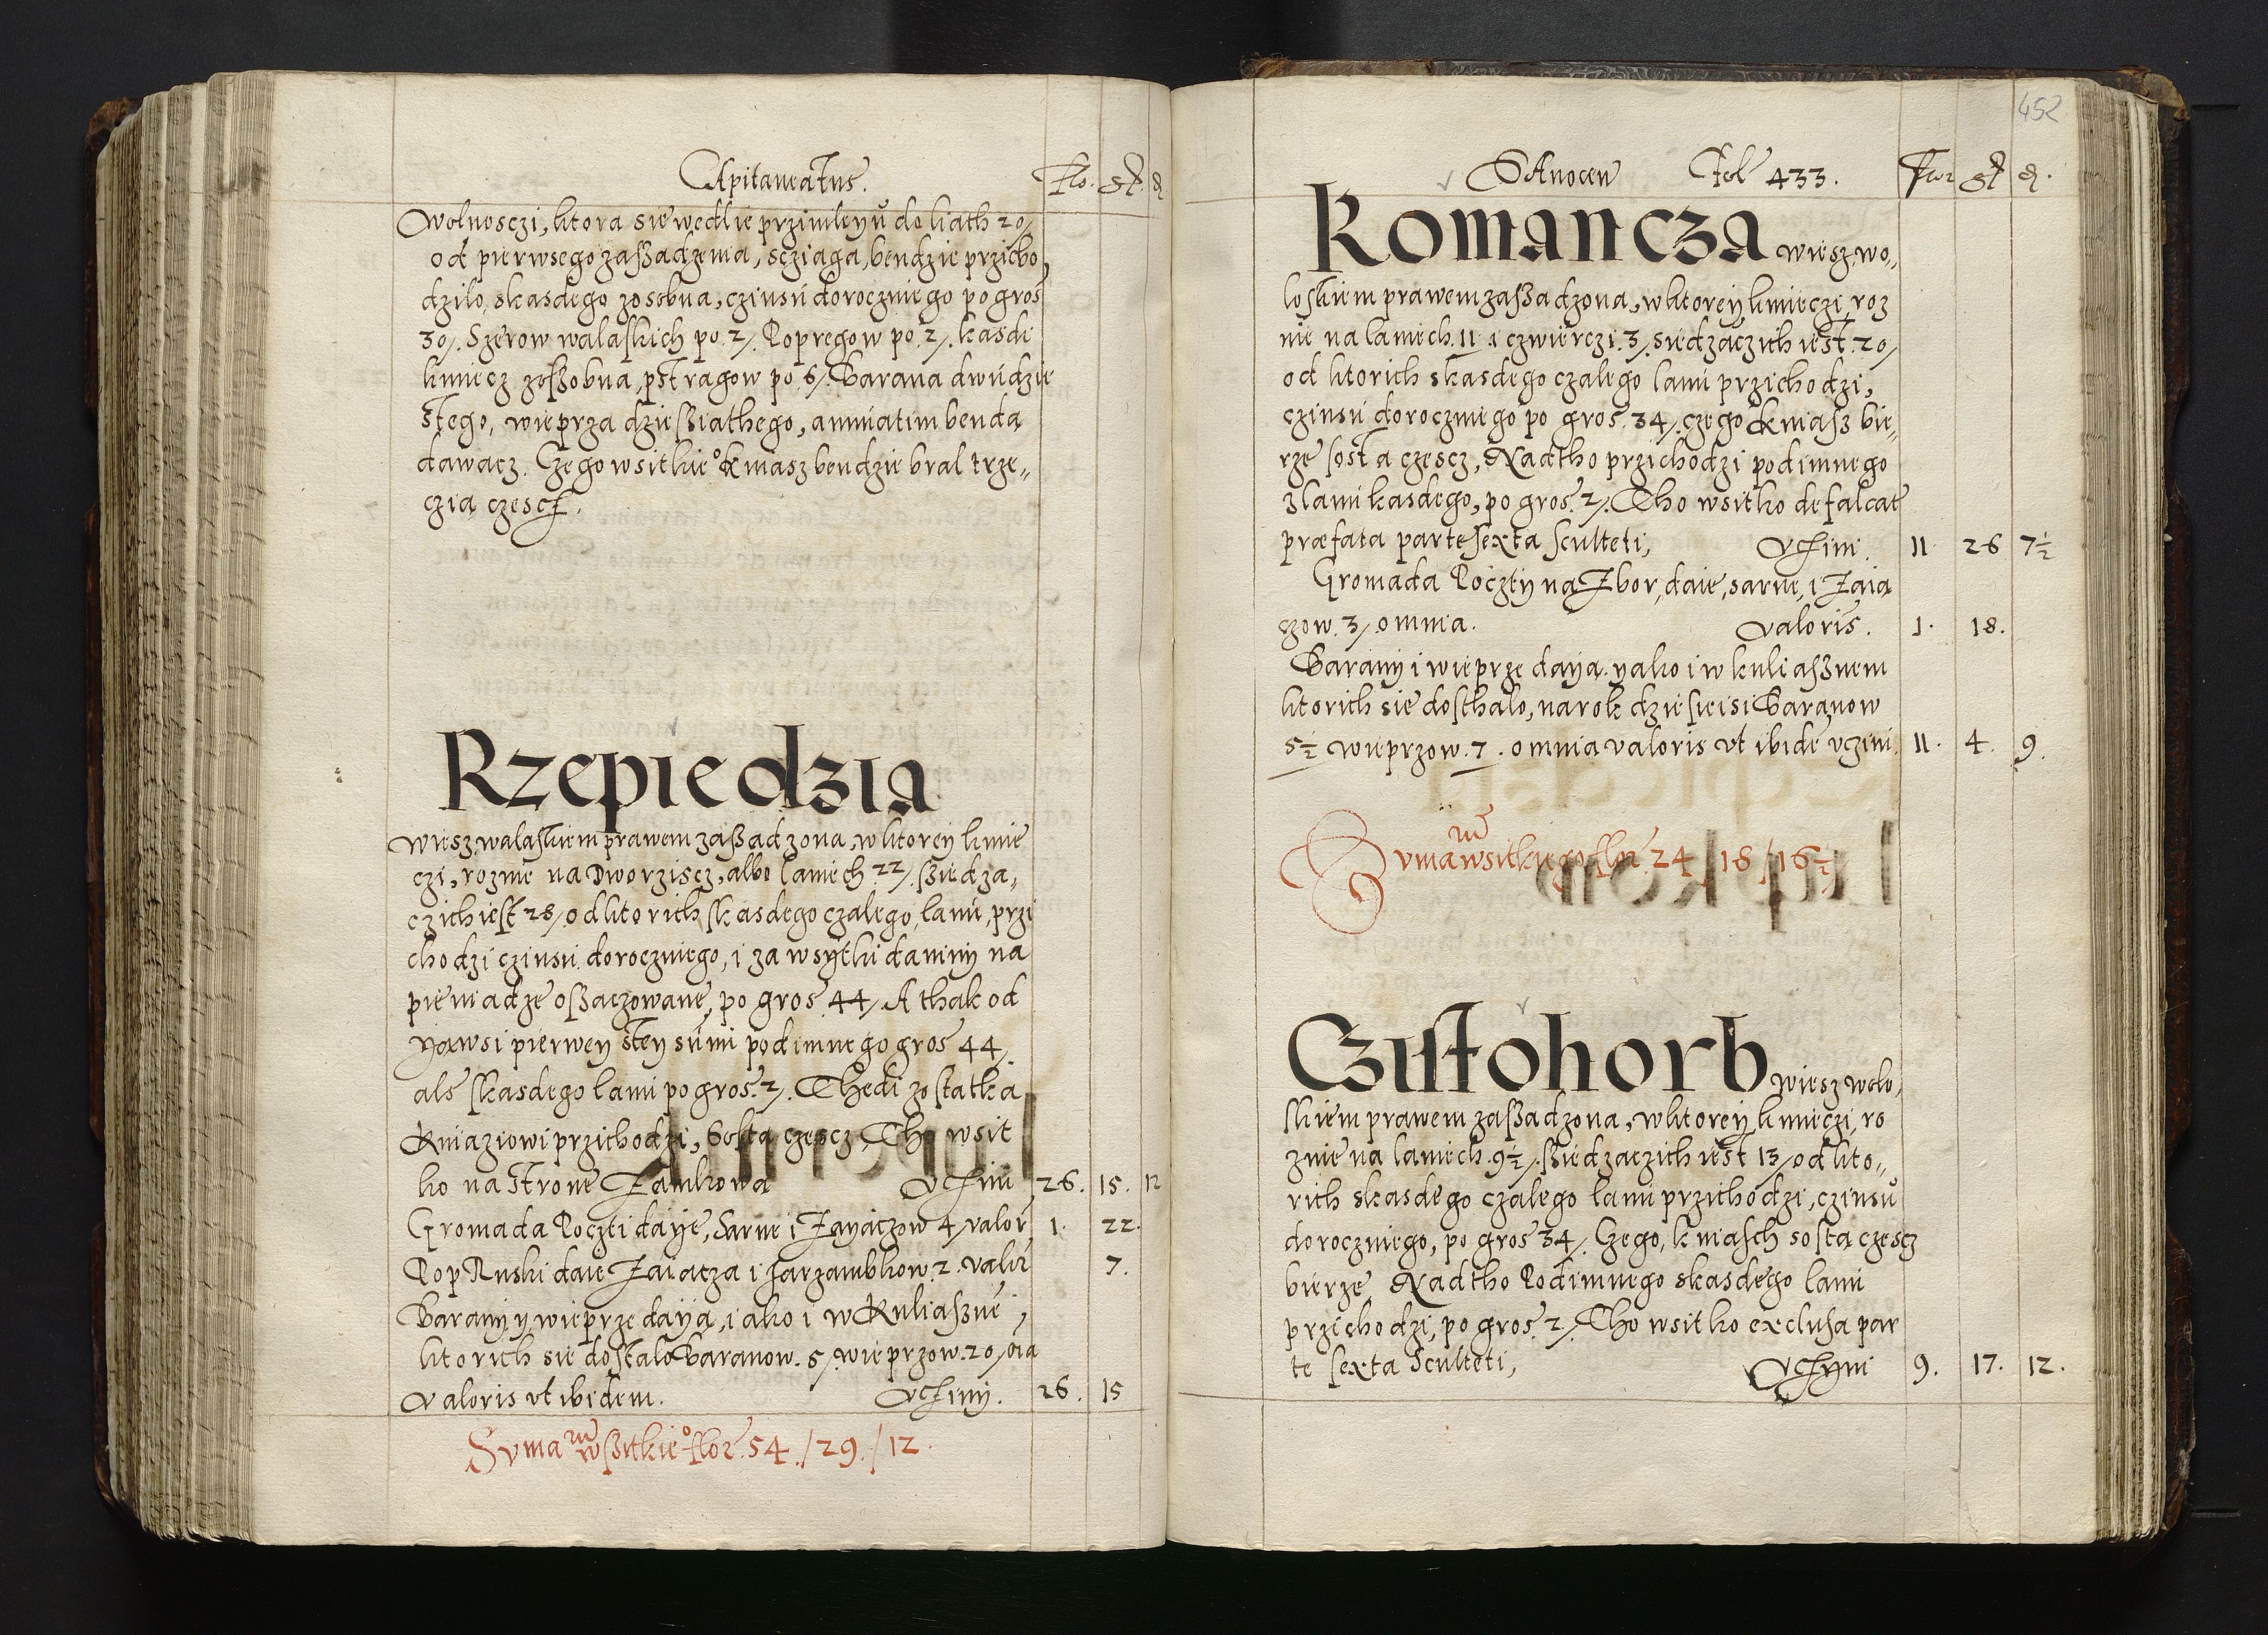 Capitaneatus.
Flo. gr. d.
Wolnosczi, ktora sie wedlie przimleyu do liath 20/
od pierwsego zaßadzenia, scziaga, bendzie przicho,
dzilo, skasdego zosobna, czinsu doroczniego po gros
30/. Szerow walaskich po 2/. Popregow po 2/. kasdi
kmiecz zoßobna pstragow po 6/. Barana dwudzie
stego, wieprza dzießiathego, anniatim benda
dawacz. Czego wsitkie° Kniasz bendzie bral trze„
czia czescz.
Rzepiedzia
wiesz walaskiem prawem zaßadzona, w ktorey kmie
czi, roznie na Dworziscz, albo laniech 22/. ßiedza„
czich iest 28/ od ktorich skasdego czalego, lanu, przi
chodzi czinsu doroczniego, i za wsytki daniny na
pieniadze oßaczowane, po gros 44/. A thak od
yawsi pierwey stey sumi podimnego gros 44/
ale skasdego lanu po gros 2/. Thedi zostatka
Kniaziowi przichodzi, sosta czescz. Tho wsit
ko na strone Zamkowa Uczini 26. 15. 12
Gromada Poczti daye, Sarne i Zayaczow 4/ valor 1. 22.
Pop Ruski daie Zaiacza i Jarzambkow 2. valor 7.
Barany y wieprze daya, iako i w Kuliaszne,
ktorich sie dostalo Baranow. 5/. wieprzow. 20/ oia
valoris ut ibidem. Ucziny. 26. 15
Suma wßitkie° flor. 54./29./12.
452
Sanocen Fol 433.
Flor gr d.
Romancza wiesz wo„
loskiem prawem zaßadzona, w ktorey kmieczi, roz
nie na laniech. 11 i czwierczi. 3/. siedzaczich iest. 20/
od ktorich skasdego czalego lanu przichodzi,
czinsu doroczniego po gros 34/. czego Kniasz bie„
rze sosta czescz, Nadtho przichodzi podimnego
z lanu kasdego, po gros 2/. Tho wsitko defalcat
præfata parte sexta sculteti, Uczini. 11 26 7½
Gromada Poczty na Zbor, daie, sarne, i Zaia
czow. 3/. omnia. valoris. 1. 18.
Barany i wieprze daya. yako i w kuliasznem
ktorich sie dosthalo, na rok dziesieisi Baranow
5½ wieprzow. 7. omnia valoris ut ibide uczini. 11. 4. 9.
Suma wsitkiego flor 24/18/16½
Czistohorb wiesz wolo,
skiem prawem zaßadzona, w ktorey kmieczi, ro
znie na laniech. 9½/. ßiedzaczich iest 13/ od kto„
rich skasdego czalego lanu przichodzi, czinsu
doroczniego, po gros 34/. Czego, kniasch sosta czescz
bierze Nadtho Podimnego skasdego lanu
przichodzi, po gros. 2/. Tho wsitko exclusa par
te sexta Sculteti, Uczyni 9. 17. 12.